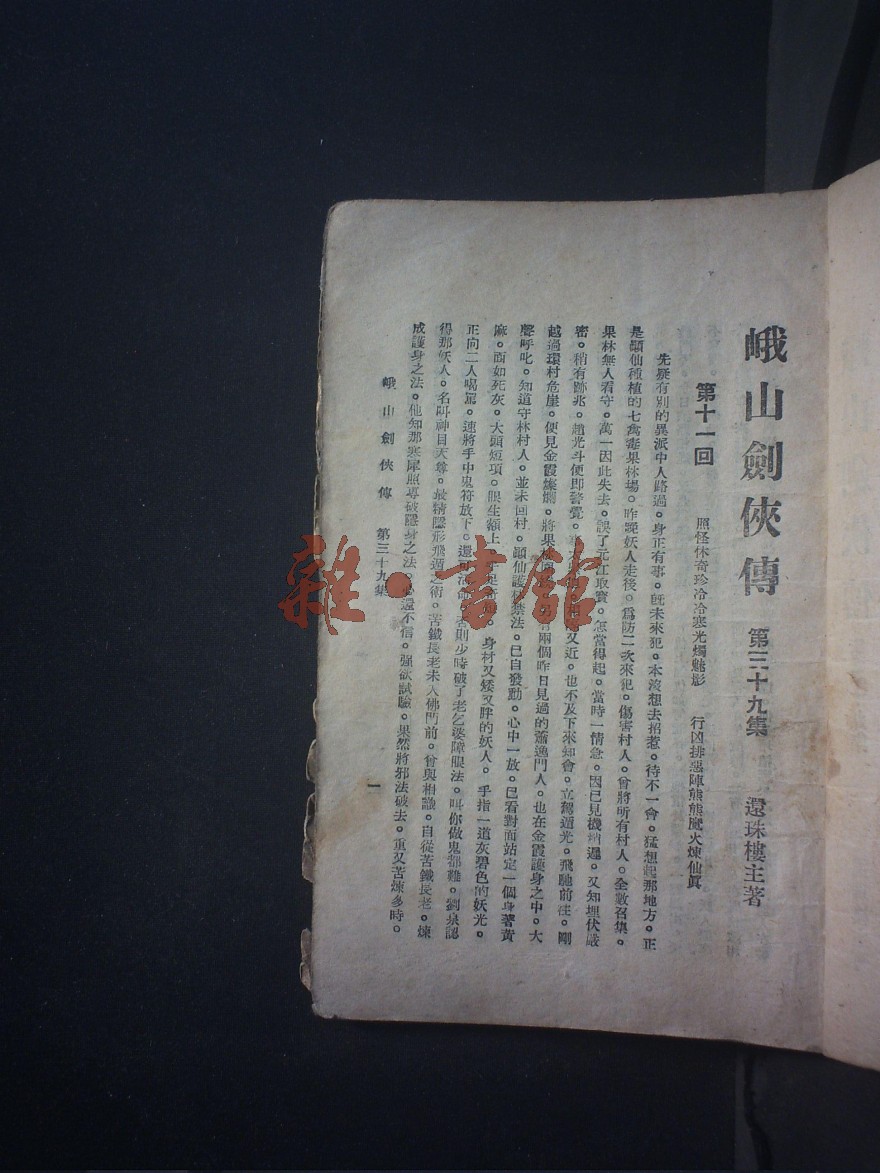 峨山劍俠傳 第三十九集 還珠樓主著
第十一回 照怪休奇珍冷冷寒光燭魅影 行凶排惡陣熊熊魔火煉仙眞
先疑有別的異派中人路過。身正有事。旣未來犯。本沒想去招惹。待不一會。猛想起那地方。正
是顚仙種植的七禽毒果林場。昨晚妖人走後。爲防二次來犯。傷害村人。曾將所有村人。全數召集。
果林無人看守。萬一因此失去。誤了元江取寶。怎當得起。當時一情急。因已見機納遁。又知埋伏嚴
密。稍有跡兆。趙光斗便卽警覺。又近。也不及下來知會。立駕遁光。飛馳前往。剛
越過環村危崖。便見金霞燦爛。將果林 兩個昨日見過的蕭逸門人。也在金霞護身之中。大
聲呼叱。知道守林村人。並未回村。顚仙護林禁法。已自發動。心中一放。已看對面站定一個身著黃
麻。面如死灰。大頭短項。眼生額上。 身材又矮又胖的妖人。手指一道灰碧色的妖光。
正向二人喝罵。速將手中鬼符放下。還 否則少時破了老乞婆障眼法。叫你做鬼都難。劉泉認
得那妖人。名叫神目天尊。最精隱形飛遁之術。苦鐵長老未入佛門前。曾與相識。自從苦鐵長老。煉
成護身之法。他知那寒犀照專破隱身之法。 還不信。强欲試驗。果然將邪法破去。重又苦煉多時。
峨山劍俠傳 第三十九集
一
雜·書館